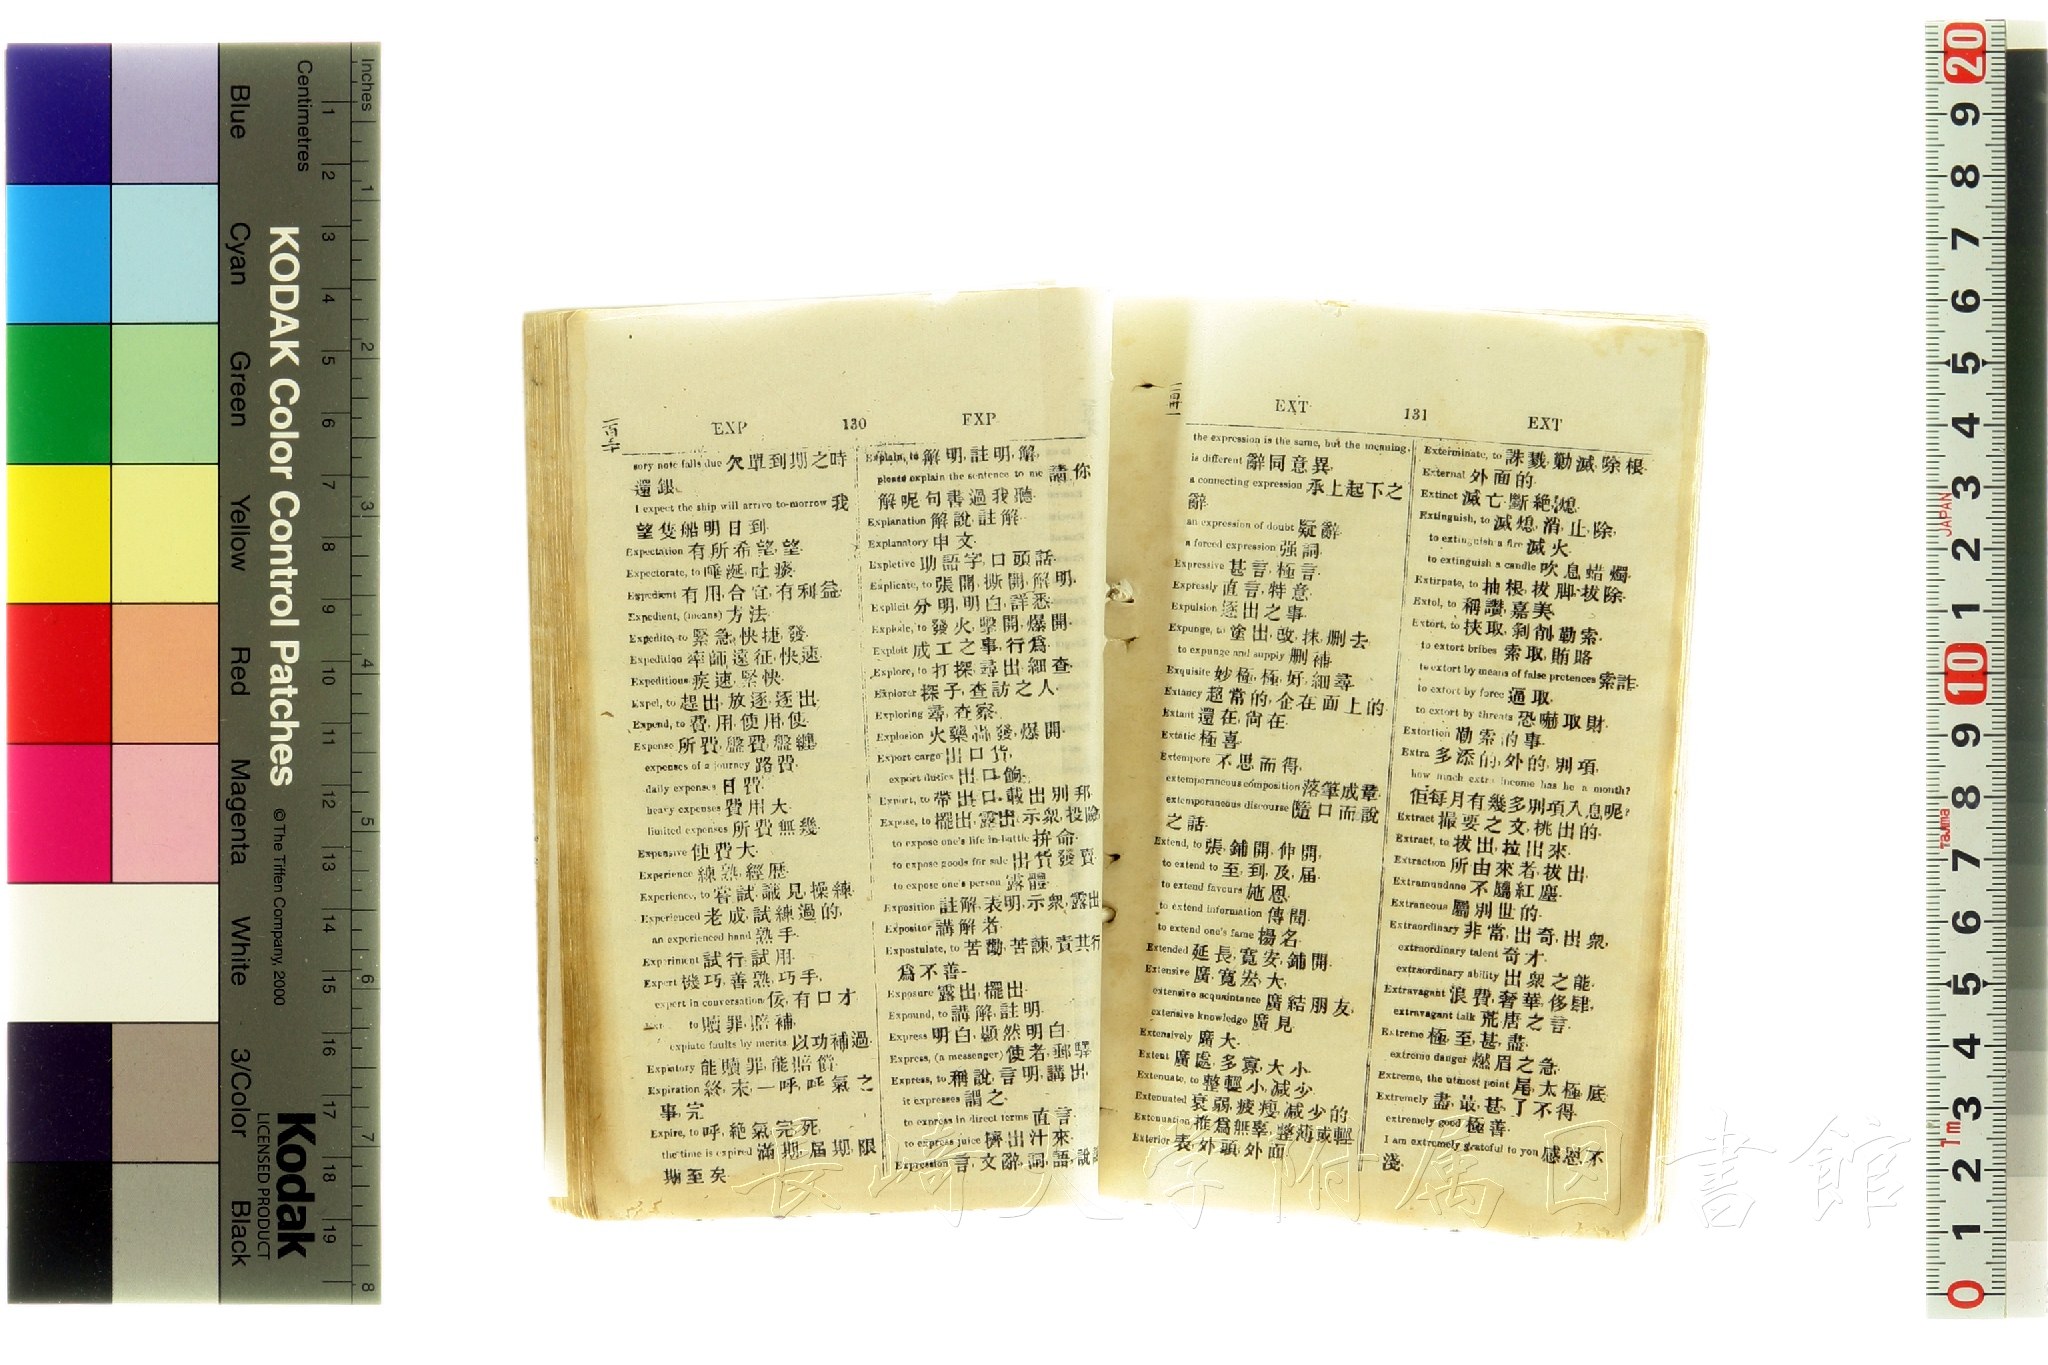 Blue
Cyan
Green
Yellow
Red
Magenta
White
3/Color
Black
Centimetres
Inches
KODAK Color Control Patches
© The Tiffen Company, 2000
Kodak
LICENSED PRODUCT
EXP 130 EXP
sory note falls due 欠單到期之時
還銀
I expect the ship will arrive to-morrow 我
望隻船明日到
Expectation 有所希望,望
Expectorate, to 唾涎,吐痰
Expedient 有用,合宜,有利益
Expedient, (means) 方法
Expedite, to 緊急,快捷,發
Expedition 率師遠征,快速
Expeditious 疾速,緊快
Expel, to 趕出,放逐,逐出
Expend, to 費,用,使用,使
Expense 所費,盤費,盤纏
expenses of a journey 路費
daily expenses 日費
heavy expenses 費用大
limited expenses 所費無幾
Expensive 使費大
Experience 練熟,經歷
Experience, to 嘗試,識見,操練
Experienced 老成,試練過的
an experienced hand 熟手
Experiment 試行,試用
Expert 機巧,善熟,巧手
expert in conversation 佞,有口才
to 贖罪,賠補
expiate faults by merits 以功補過
Expiatory 能贖罪,能賠償
Expiration 終,末,一呼,呼氣之
事,完
Expire, to 呼,絶氣,完,死
the time is expired 滿期,屆期,限
期至矣
Explain, to 解明,註明,解
please explain the sentence to me 請你
解呢句書過我聽
Explanation 解說,註解
Explanatory 申文
Expletive 助語字,口頭話
Explicate, to 張開,撕開,解明
Explicit 分明,明白,詳悉
Explode, to 發火,擊開,爆開
Exploit 成工之事,行爲
Explore, to 打探,尋出,細查
Explorer 探子,查訪之人
Exploring 尋,查察
Explosion 火藥轟發,爆開
Export cargo 出口貨
export duties 出口餉
Export, to 帶出口,載出別邦
Expose, to 擺出,露出,示衆,投險
to expose one's life in battle 拚命
to expose goods for sale 出貨發賣
to expose one's person 露體
Exposition 註解,表明,示衆,露出
Expositor 講解者
Expostulate, to 苦勸,苦諫,責其行
爲不善
Exposure 露出,擺出
Expound, to 講解,註明
Express 明白,顯然明白
Express, (a messenger) 使者,郵驛
Express, to 稱說,言明,講出
it expresses 謂之
to express in direct terms 直言
to express juice 擠出汁來
Expression 言,文辭,詞,語,說
EXT 131 EXT
the expression is the same, but the meaning
is different 辭同意異
a connecting expression 承上起下之
辭
an expression of doubt 疑辭
a forced expression 强詞
Expressive 甚言,極言
Expressly 直言,特意
Expulsion 逐出之事
Expunge, to 塗出,改,抹,删去
to expunge and supply 删補
Exquisite 妙極,極好,細尋
Extancy 超常的,企在面上的
Extant 還在,尚在
Extatic 極喜
Extempore 不思而得
extemporaneous composition 落筆成章
extemporaneous discourse 隨口而說
之話
Extend, to 張,鋪開,伸開
to extend to 至,到,及,屆
to extend favours 施恩
to extend information 傳聞
to extend one's fame 揚名
Extended 延長,寬安,鋪開
Extensive 廣,寬,宏大
extensive acquaintance 廣結朋友
extensive knowledge 廣見
Extensively 廣大
Extent 廣處,多寡,大小
Extenuate, to 整輕小,减少
Extenuated 衰弱,疲瘦,减少的
Extenuation 推爲無辜,整薄或輕
Exterior 表,外頭,外面
Exterminate, to 誅戮,勦滅,除根
External 外面的
Extinct 滅亡,斷絶,熄
Extinguish, to 滅熄,消,止,除
to extinguish a fire 滅火
to extinguish a candle 吹息蜡燭
Extirpate, to 抽根,拔脚,拔除
Extol, to 稱讚,嘉美
Extort, to 挾取,剝削,勒索
to extort bribes 索取,賄賂
to extort by means of false pretences 索詐
to extort by force 逼取
to extort by threats 恐嚇取財
Extortion 勒索的事
Extra 多添的,外的,別項
how much extra income has he a month?
佢每月有幾多別項入息呢?
Extract 撮要之文,挑出的
Extract, to 拔出,拉出來
Extraction 所由來者,拔出
Extramundane 不屬紅塵
Extraneous 屬別世的
Extraordinary 非常,出奇,出衆
extraordinary talent 奇才
extraordinary ability 出衆之能
Extravagant 浪費,奢華,侈肆
extravagant talk 荒唐之言
Extreme 極,至,甚,盡
extreme danger 燃眉之急
Extreme, the utmost point 尾,太極,底
Extremely 盡,最,甚,了不得
extremely good 極善
I am extremely grateful to you 感恩不
淺
長崎大学附属図書館
JAPAN
Tajima
1m